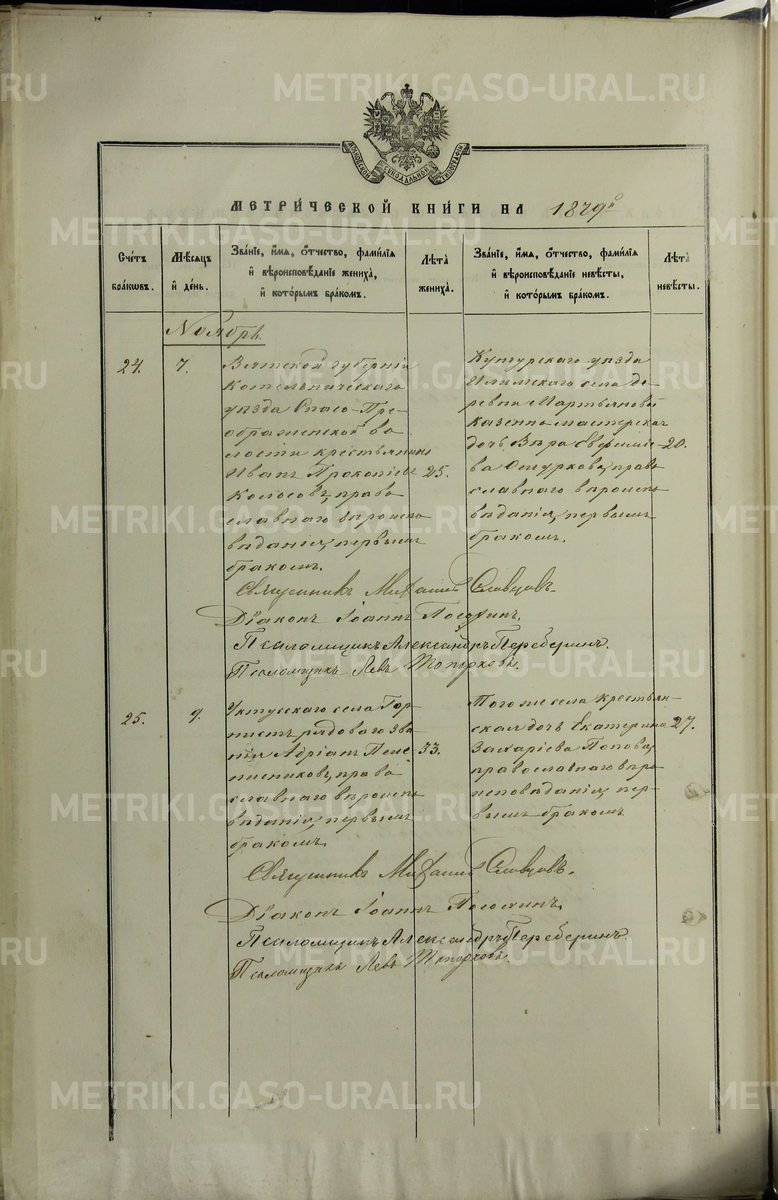 METRIKI.GASO-URAL.RU
МОСКОВСКОЙ СѴНОДАЛЬНОЙ ТИПОГРАФІИ
МЕТРИ́ЧЕСКОЙ КНИ́ГИ НА 1879й
Сче́тъ бра́кѡвъ.
М҃ѣсяцъ и҆ де́нь.
Зва́нїе, и҆́мѧ, ѻ҆́тчество, фами́лїѧ и҆ вѣроисповѣ́данїе жениха̀, и҆ кото́рымъ бра́комъ.
Лѣ́та жениха̀.
Зва́нїе, и҆́мѧ, ѻ҆́тчество, фами́лїѧ и҆ вѣроисповѣ́данїе невѣ́сты, и҆ кото́рымъ бра́комъ.
Лѣ́та невѣ́сты.
Ноябрь.
24.
7.
Вятской губерніи
Котельническаго
уѣзда Спасо-Пре
ображенской во
лости крестьянинъ
Иванъ Прокопіевъ
Колосовъ, право
славнаго вѣроиспо
вѣданія, первымъ
бракомъ.
25.
Кунгурскаго уѣзда
Илимскаго села де
ревни Мартьяновой
казенно мастерская
дочь Вѣра Евфиміе
ва, право
славнаго вѣроиспо
вѣданія, первымъ
бракомъ.
20.
Священникъ Михаилъ Словцовъ.
Діаконъ Іоаннъ
Псаломщикъ Александръ Переберинъ.
Псаломщикъ Левъ Топорковъ.
25.
9.
Уктусскаго села Гор
нистъ рядоваго зва
нія Адріанъ
право
славнаго вѣроиспо
вѣданія, первымъ
бракомъ.
33.
Того же села крестьян
ская дочь Екатерина
Захаріева Попова,
православнаго вѣро
исповѣданія, пер
вымъ бракомъ.
27.
Священникъ Михаилъ Словцовъ.
Діаконъ Іоаннъ
Псаломщикъ Александръ Переберинъ.
Псаломщикъ Левъ Топорковъ.